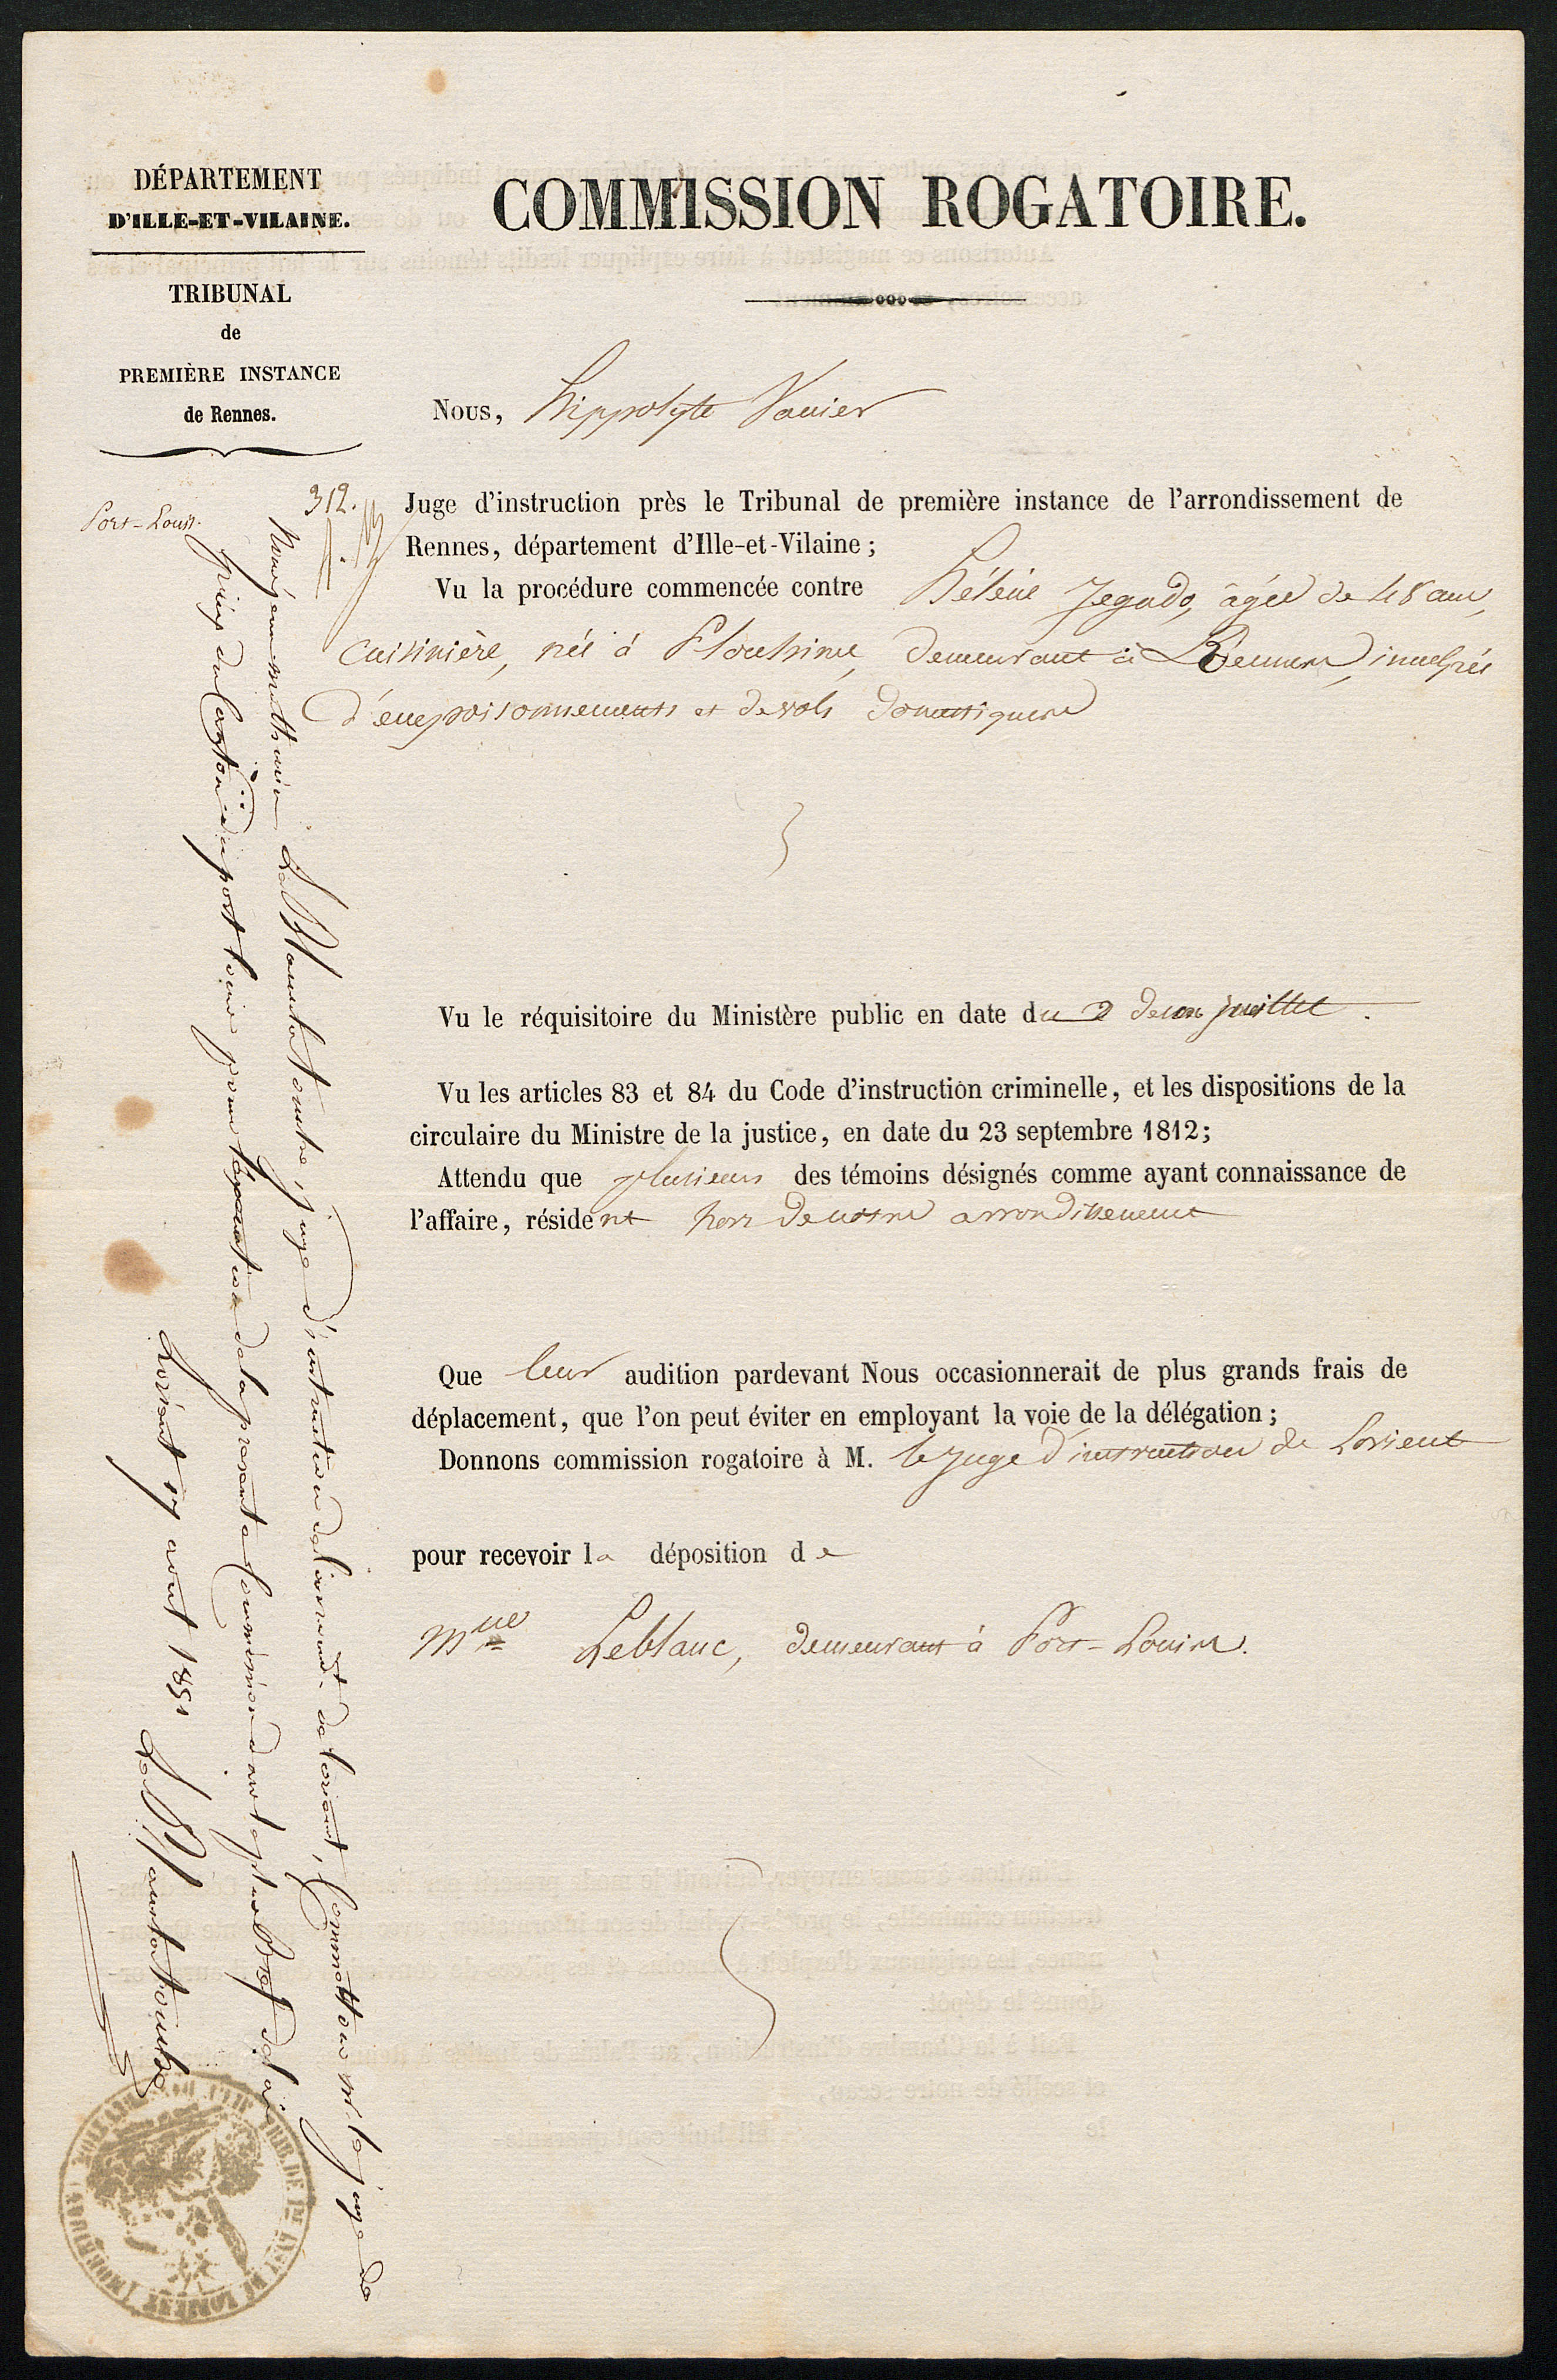 DÉPARTEMENT
D'ILLE-ET-VILAINE.
TRIBUNAL
de
PREMIÈRE INSTANCE
de Rennes.
COMMISSION ROGATOIRE.
Nous, hippolyte Vanier
312.
Port-Louis.
Juge d'instruction près le Tribunal de première instance de l'arrondissement de
Rennes, département d'Ille-et-Vilaine;
Vu la procédure commencée contre hélène Jegado, âgée de 48 ans,
cuisinière, née à Plouhinec, demeurant à Rennes, inculpée
d'empoisonnements et de vols domestiques
Vu le réquisitoire du Ministère public en date du 2 de ce juillet.
Vu les articles 83 et 84 du Code d'instruction criminelle, et les dispositions de la
circulaire du Ministre de la justice, en date du 23 septembre 1812;
Attendu que plusieurs des témoins désignés comme ayant connaissance de
l'affaire, résident hors de notre arrondissement
Que leur audition pardevant Nous occasionnerait de plus grands frais de
déplacement, que l'on peut éviter en employant la voie de la délégation;
Donnons commission rogatoire à M. le juge d'instruction de Lorient
pour recevoir la déposition de
Mlle Leblanc, demeurant à Port-Louis.
Nous juge d'instruction de l'arrond.t de lorient, Commettons mr. le juge de
paix du Canton du port louis pour l'exécution de la présente Commission dans le plus Bref délai
Lorient 17 août 1851
TRIB. DE 1re INST. DE LORIENT (MORBIHAN)